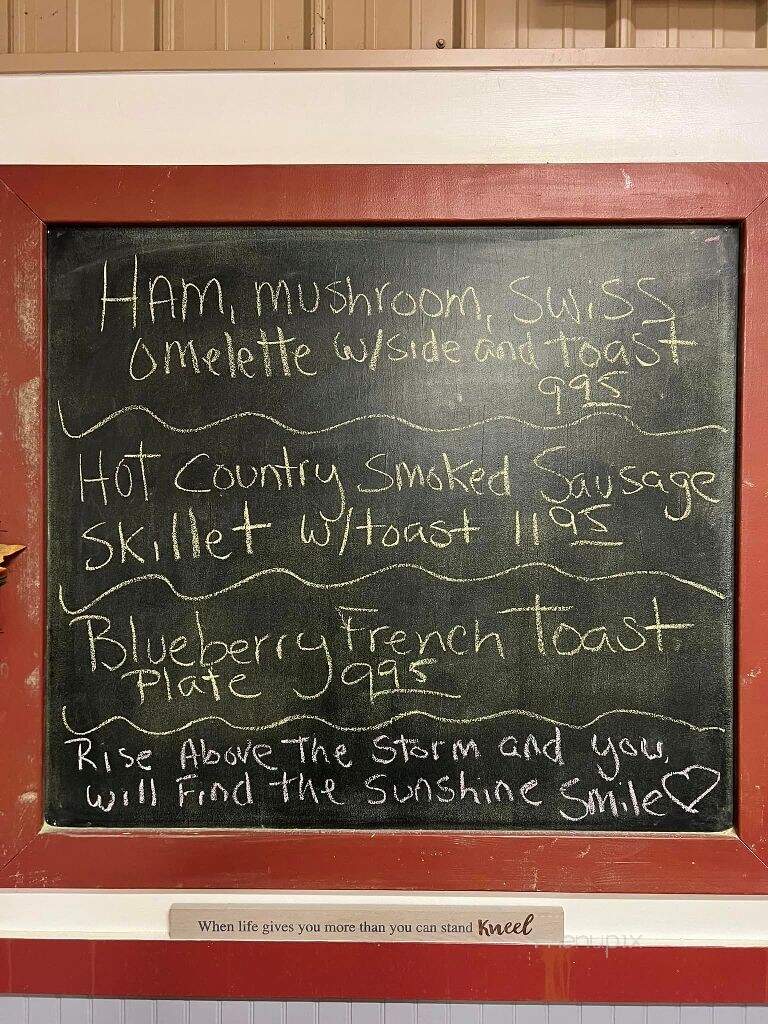 Ham, mushroom, swiss
omelette w/side and toast
995
Hot Country Smoked Sausage
Skillet w/toast 1195
Blueberry French Toast
Plate 995
Rise Above The Storm and you
will Find the Sunshine Smile
When life gives you more than you can stand Kneel
menupix